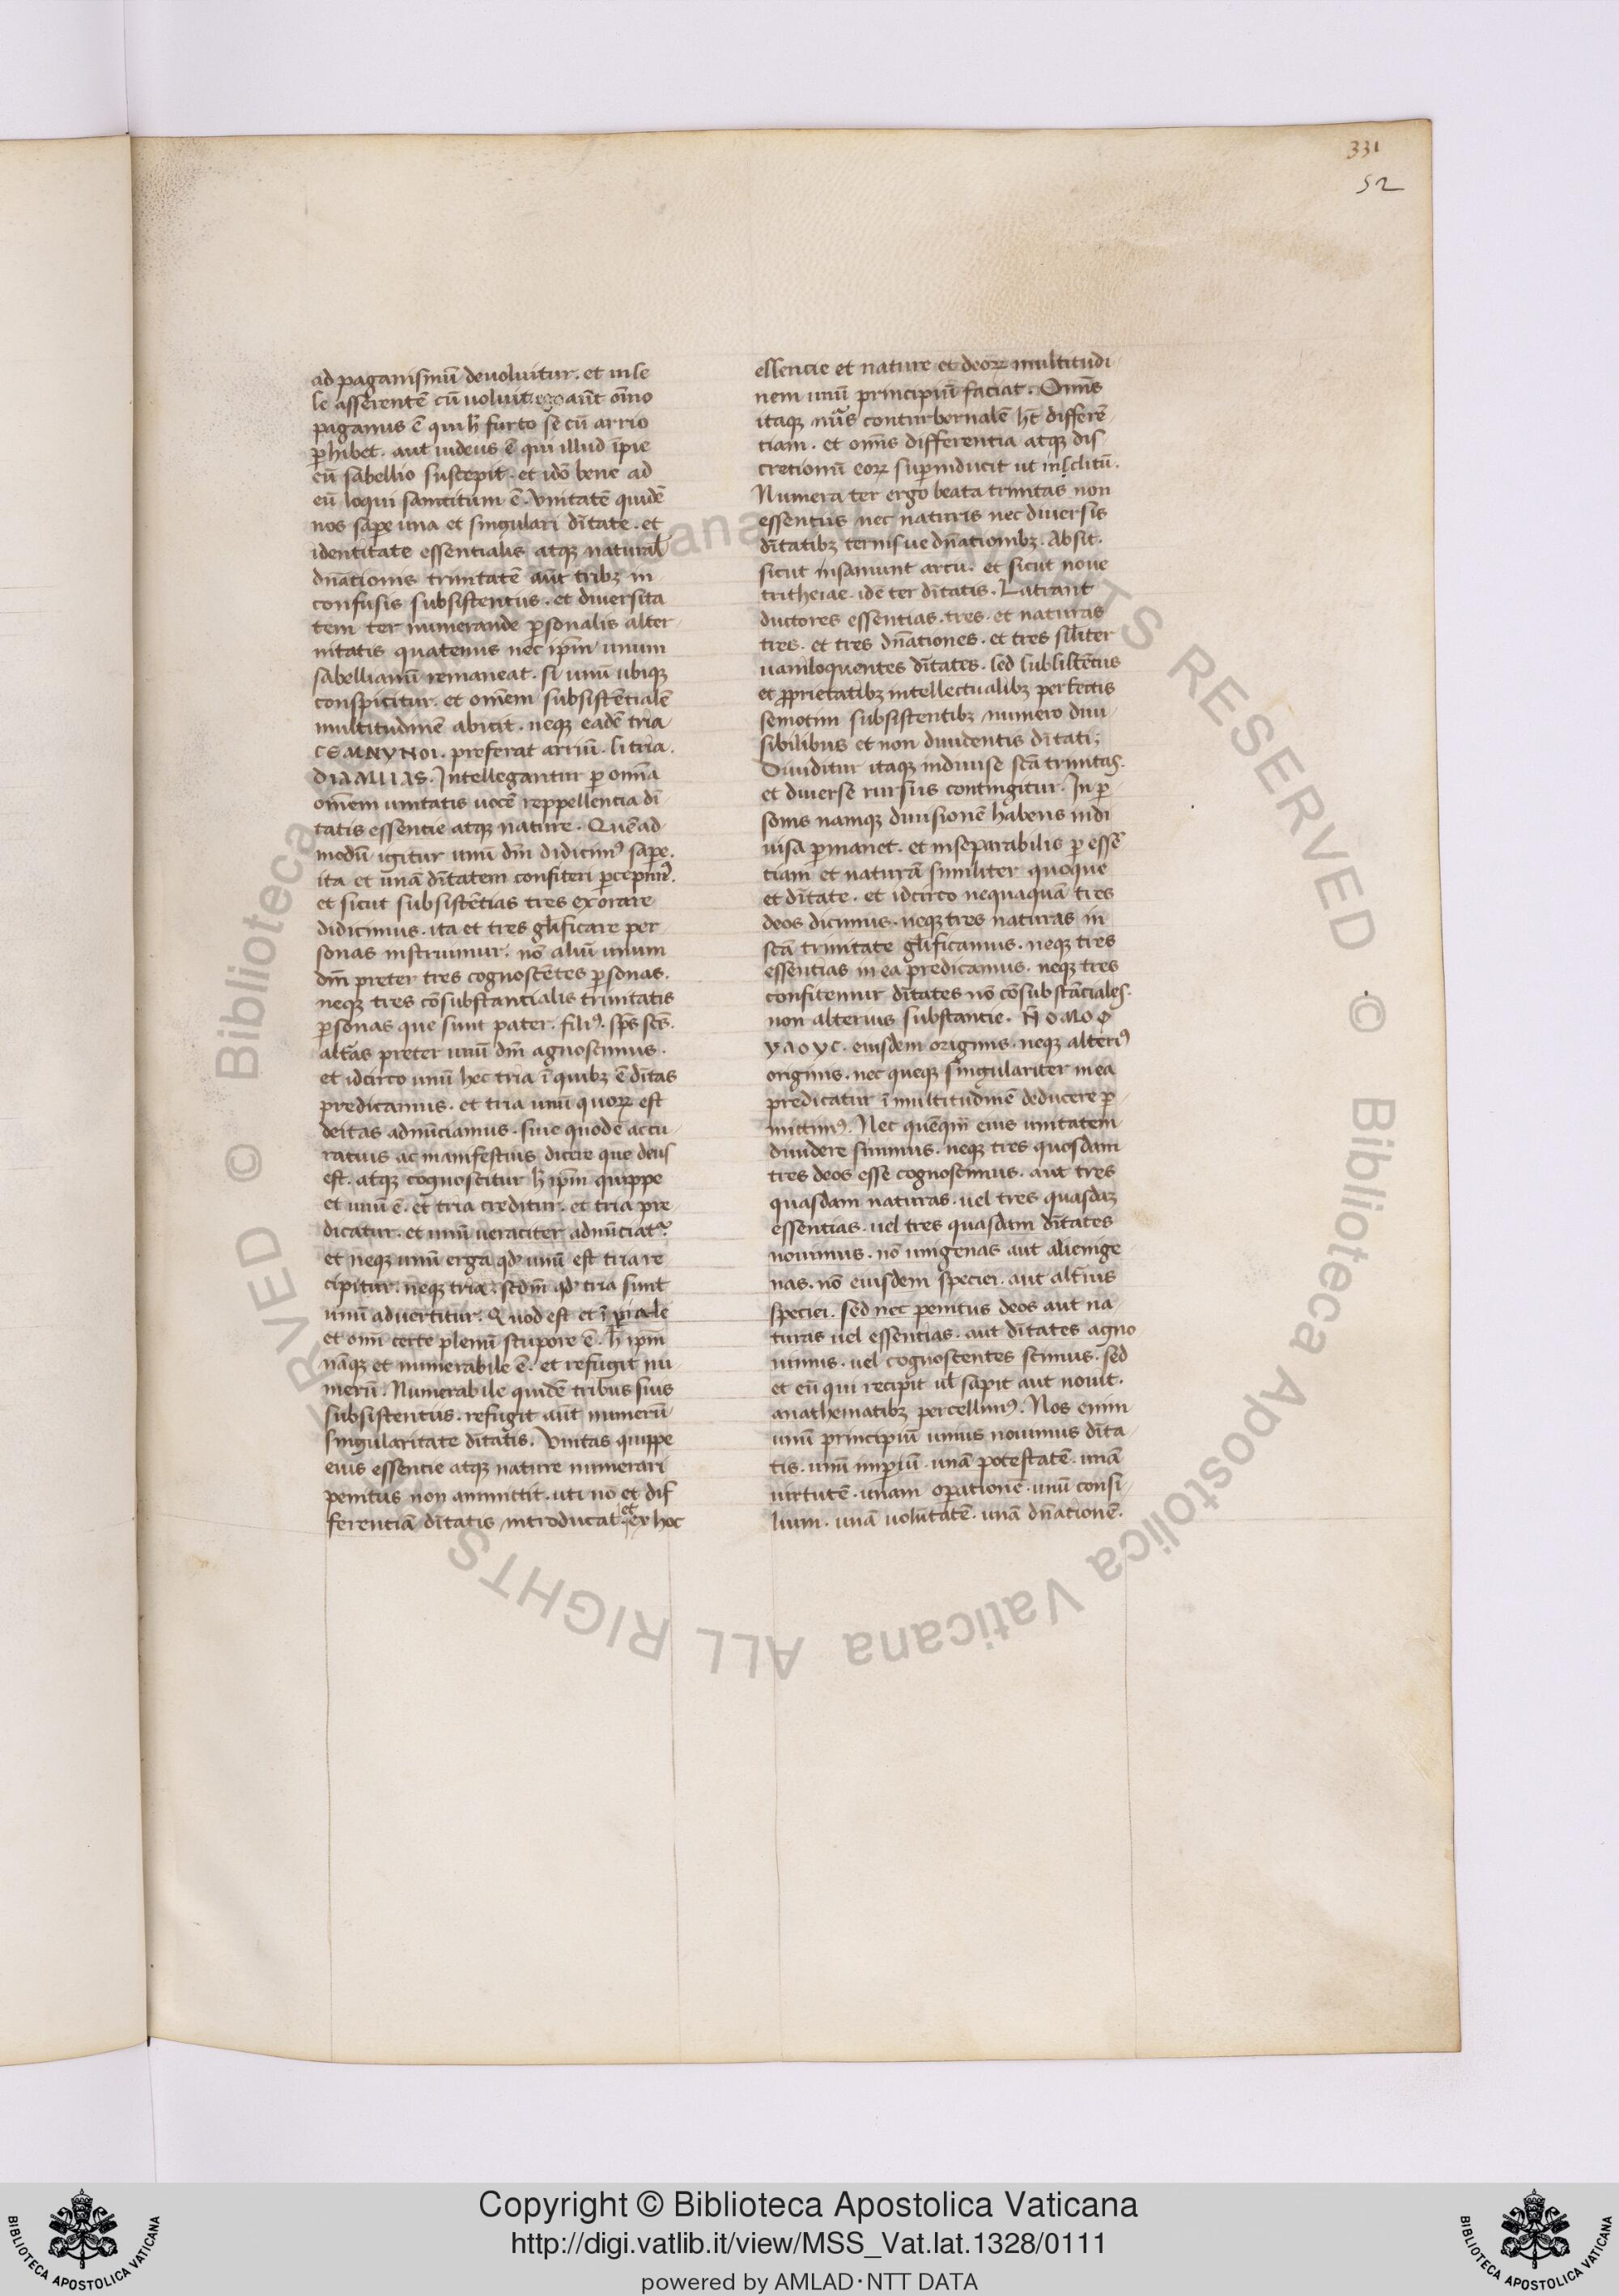 331
52
ad paganismū deuoluitur. et in se
le asserentē cū uoluit. ego aūt oīno
paganus ē qui h̄ furto se cū arrio
phibet. aut iudeus ē qui illud īpie
cū sabellio suscepit. et idō bene ad
eū loqui sanctitum ē. Vnitatē quidē
nos sape una et singulari dītate. et
identitate essentialis atqꝫ natural
dnātionis trinitatē aūt tribꝫ in
confusis subsistentiis. et diuersita
tem ter numerande psonalis alter
nitatis quatenus nec ipm̄ unum
sabellianū remaneat. si unū ubiqꝫ
conspicitur. et om̄em subsistētialē
multitudinē abicit. neqꝫ eadē tria
CEMNYNOI. preferat arriū. si tria.
DIAMIIAS. Intellegantur p om̄a
om̄em unitatis uocē reppellencia dī
tatis essentie atqꝫ nature. Quēad
modū igitur unū dm̄ didicim⁹ sape.
ita et unā dītatem confiteri pcepim⁹.
et sicut subsistētias tres exorare
didicimus. ita et tres glīficare per
sonas instruimur. nō aliū unum
dm̄ preter tres cognoscētes psonas.
neqꝫ tres cōsubstantialis trinitatis
psonas que sunt pater. fili⁹. sp̄s sc̄s.
altās preter unū dm̄ agnoscimus.
et idcirco unū hec tria ī quibꝫ ē dītas
predicamus. et tria unū quoꝝ est
deitas adnūciamus. siue quodē accu
ratius ac manifestius dicere que deus
est. atqꝫ cognoscitur h̄ ipm̄ quippe
et unū ē. et tria creditur. et tria pre
dicatur. et unū ueraciter adnūciat.
et neqꝫ unū erga qd̄ unū est tria re
cipitur. neqꝫ tria. scdm̄ qd̄ tria sunt
unū aduertitur. Quod est et
et om̄i certe plenū stupore ē. h̄ ipm̄
nāqꝫ et numerabile ē. et refugit nu
merū. Numerabile quidē tribus suis
subsistentiis. refugit aūt numerū
singularitate dītatis. Vnitas quippe
eius essentie atqꝫ nature numerari
penitus non ammittit. uti nō et dif
ferentiā dītatis introducat et ex hoc
essencie et nature et deoꝝ multitudi
nem unū principiū faciat. Om̄is
itaqꝫ nr̄is conturbernalē hc̄ differē
tiam. et om̄is differentia atqꝫ dis
cretionū eoꝝ supinducit ut inclitū.
Numera ter ergo beata trinitas non
essentiis nec naturis nec diuersis
dītatibꝫ ternisue dnātionibꝫ. Absit.
sicut insaniunt arrii. et sicut noue
tritheiae. idē ter dītatis. Latrant
ductores essentias. tres. et naturas
tres. et tres dnātiones. et tres siliter
uaniloquentes dītates. sed subsistētiis
et pprietatibꝫ intellectualibꝫ perfectis
semotim subsistentibꝫ numero diui
sibilibus et non diuidentis dītati;
Diuiditur itaqꝫ indiuise sc̄ā trinitas.
et diuerse rursus contingitur. In p
sonis namqꝫ diuisionē habens indi
uisa pmanet. et inseparabilis p essē
tiam et naturā similiter quoque
et dītate. et idcirco nequaquā tres
deos dicimus. neqꝫ tres naturas in
sc̄ā trinitate glīficamus. neqꝫ tres
essentias in ea predicamus. neqꝫ tres
confitemur dītates nō cōsubstāciales.
non alterius substantie. HOMOO
YAOYC. eiusdem originis. neqꝫ alteri⁹
originis. nec queqꝫ singulariter in ea
predicatur ī multitudinē deducere p
mittim⁹. Nec quēqm̄ eius unitatem
diuidere sinimus. neqꝫ tres quosdam
tres deos esse cognoscimus. aut tres
quasdam naturas. uel tres quasdaꝫ
essentias. uel tres quasdam dītates
nouimus. nō unigenas aut alienige
nas. nō eiusdem speciei. aut altīus
speciei. sed nec penitus deos aut na
turas uel essentias. aut dītates agno
uimus. uel cognoscentes scimus. sed
et eū qui recipit ul̄ sapit aut nouit.
anathematibꝫ percellim⁹. Nos enim
unū principiū unius nouimus dīta
tis. unū impiū. unā potestatē. unā
uirtutē. unam opationē. unū consi
lium. unā uolūtatē. unā dnātionē.
Copyright © Biblioteca Apostolica Vaticana
http://digi.vatlib.it/view/MSS_Vat.lat.1328/0111
powered by AMLAD·NTT DATA
BIBLIOTECA APOSTOLICA VATICANA
BIBLIOTECA APOSTOLICA VATICANA